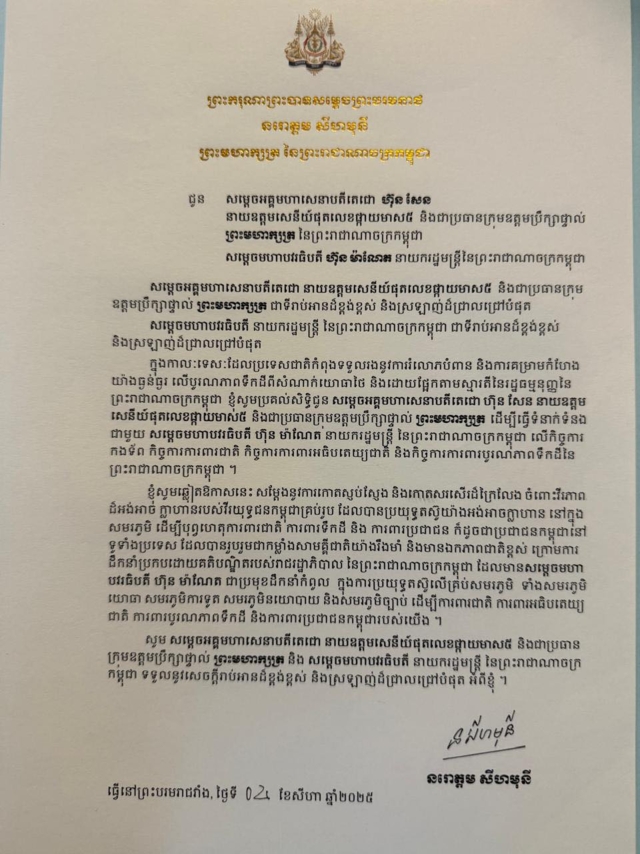 ព្រះករុណាព្រះបាទសម្តេចព្រះបរមនាថ
នរោត្តម សីហមុនី
ព្រះមហាក្សត្រ នៃព្រះរាជាណាចក្រកម្ពុជា
ជូន សម្តេចអគ្គមហាសេនាបតីតេជោ ហ៊ុន សែន
នាយឧត្តមសេនីយ៍ផុតលេខផ្កាយមាស៥ និងជាប្រធានក្រុមឧត្តមប្រឹក្សាផ្ទាល់
ព្រះមហាក្សត្រ នៃព្រះរាជាណាចក្រកម្ពុជា
សម្តេចមហាបវរធិបតី ហ៊ុន ម៉ាណែត នាយករដ្ឋមន្ត្រីនៃព្រះរាជាណាចក្រកម្ពុជា
សម្តេចអគ្គមហាសេនាបតីតេជោ នាយឧត្តមសេនីយ៍ផុតលេខផ្កាយមាស៥ និងជាប្រធានក្រុម
ឧត្តមប្រឹក្សាផ្ទាល់ ព្រះមហាក្សត្រ ជាទីរាប់អានដ៏ខ្ពង់ខ្ពស់ និងស្រឡាញ់ដ៏ជ្រាលជ្រៅបំផុត
សម្តេចមហាបវរធិបតី នាយករដ្ឋមន្ត្រី នៃព្រះរាជាណាចក្រកម្ពុជា ជាទីរាប់អានដ៏ខ្ពង់ខ្ពស់
និងស្រឡាញ់ដ៏ជ្រាលជ្រៅបំផុត
ក្នុងកាលៈទេសៈដែលប្រទេសជាតិកំពុងទទួលរងនូវការរំលោភបំពាន និងការគម្រាមកំហែង
យ៉ាងធ្ងន់ធ្ងរ លើបូរណភាពទឹកដីពីសំណាក់យោធាថៃ និងដោយផ្អែកតាមស្មារតីនៃរដ្ឋធម្មនុញ្ញនៃ
ព្រះរាជាណាចក្រកម្ពុជា ខ្ញុំសូមប្រគល់សិទ្ធិជូន សម្តេចអគ្គមហាសេនាបតីតេជោ ហ៊ុន សែន នាយឧត្តម
សេនីយ៍ផុតលេខផ្កាយមាស៥ និងជាប្រធានក្រុមឧត្តមប្រឹក្សាផ្ទាល់ ព្រះមហាក្សត្រ ដើម្បីធ្វើទំនាក់ទំនង
ជាមួយ សម្តេចមហាបវរធិបតី ហ៊ុន ម៉ាណែត នាយករដ្ឋមន្ត្រី នៃព្រះរាជាណាចក្រកម្ពុជា លើកិច្ចការ
កងទ័ព កិច្ចការការពារជាតិ កិច្ចការការពារអធិបតេយ្យជាតិ និងកិច្ចការការពារបូរណភាពទឹកដីនៃ
ព្រះរាជាណាចក្រកម្ពុជា ។
ខ្ញុំសូមឆ្លៀតឱកាសនេះ សម្តែងនូវការកោតស្ញប់ស្ញែង និងកោតសរសើរដ៏ក្រៃលែង ចំពោះវីរភាព
ដ៏អង់អាច ក្លាហានរបស់វីរយុទ្ធជនកម្ពុជាគ្រប់រូប ដែលបានប្រយុទ្ធតស៊ូយ៉ាងអង់អាចក្លាហាន នៅក្នុង
សមរភូមិ ដើម្បីបុព្វហេតុការពារជាតិ ការពារទឹកដី និង ការពារប្រជាជន ក៏ដូចជាប្រជាជនកម្ពុជានៅ
ទូទាំងប្រទេស ដែលបានរួបរួមជាកម្លាំងសាមគ្គីជាតិយ៉ាងរឹងមាំ និងមានឯកភាពជាតិខ្ពស់ ក្រោមការ
ដឹកនាំប្រកបដោយគតិបណ្ឌិតរបស់រាជរដ្ឋាភិបាល នៃព្រះរាជាណាចក្រកម្ពុជា ដែលមានសម្តេចមហា
បវរធិបតី ហ៊ុន ម៉ាណែត ជាប្រមុខដឹកនាំកំពូល ក្នុងការប្រយុទ្ធតស៊ូលើគ្រប់សមរភូមិ ទាំងសមរភូមិ
យោធា សមរភូមិការទូត សមរភូមិនយោបាយ និងសមរភូមិច្បាប់ ដើម្បីការពារជាតិ ការពារអធិបតេយ្យ
ជាតិ ការពារបូរណភាពទឹកដី និងការពារប្រជាជនកម្ពុជារបស់យើង ។
សូម សម្តេចអគ្គមហាសេនាបតីតេជោ នាយឧត្តមសេនីយ៍ផុតលេខផ្កាយមាស៥ និងជាប្រធាន
ក្រុមឧត្តមប្រឹក្សាផ្ទាល់ ព្រះមហាក្សត្រ និង សម្តេចមហាបវរធិបតី នាយករដ្ឋមន្ត្រី នៃព្រះរាជាណាចក្រ
កម្ពុជា ទទួលនូវសេចក្តីរាប់អានដ៏ខ្ពង់ខ្ពស់ និងស្រឡាញ់ដ៏ជ្រាលជ្រៅបំផុត អំពីខ្ញុំ ។
ន សីហមុនី
នរោត្តម សីហមុនី
ធ្វើនៅព្រះបរមរាជវាំង, ថ្ងៃទី ខែសីហា ឆ្នាំ២០២៥